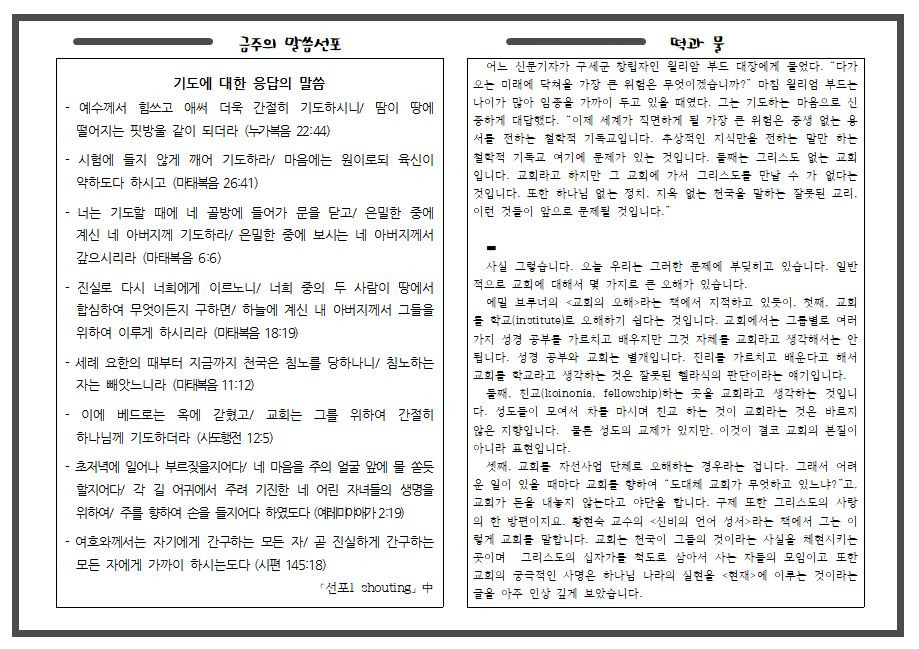 금주의 말씀선포
기도에 대한 응답의 말씀
- 예수께서 힘쓰고 애써 더욱 간절히 기도하시니/ 땀이 땅에
떨어지는 핏방울 같이 되더라 (누가복음 22:44)
- 시험에 들지 않게 깨어 기도하라/ 마음에는 원이로되 육신이
약하도다 하시고 (마태복음 26:41)
- 너는 기도할 때에 네 골방에 들어가 문을 닫고/ 은밀한 중에
계신 네 아버지께 기도하라/ 은밀한 중에 보시는 네 아버지께서
갚으시리라 (마태복음 6:6)
- 진실로 다시 너희에게 이르노니/ 너희 중의 두 사람이 땅에서
합심하여 무엇이든지 구하면/ 하늘에 계신 내 아버지께서 그들을
위하여 이루게 하시리라 (마태복음 18:19)
- 세례 요한의 때부터 지금까지 천국은 침노를 당하나니/ 침노하는
자는 빼앗느니라 (마태복음 11:12)
- 이에 베드로는 옥에 갇혔고/ 교회는 그를 위하여 간절히
하나님께 기도하더라 (사도행전 12:5)
- 초저녁에 일어나 부르짖을지어다/ 네 마음을 주의 얼굴 앞에 물 쏟듯
할지어다/ 각 길 어귀에서 주려 기진한 네 어린 자녀들의 생명을
위하여/ 주를 향하여 손을 들지어다 하였도다 (예레미야애가 2:19)
- 여호와께서는 자기에게 간구하는 모든 자/ 곧 진실하게 간구하는
모든 자에게 가까이 하시는도다 (시편 145:18)
「선포1 shouting」 中
떡과 물
어느 신문기자가 구세군 창립자인 윌리암 부드 대장에게 물었다. “다가
오는 미래에 닥쳐올 가장 큰 위험은 무엇이겠습니까?” 마침 윌리엄 부드는
나이가 많아 임종을 가까이 두고 있을 때였다. 그는 기도하는 마음으로 신
중하게 대답했다. “이제 세계가 직면하게 될 가장 큰 위험은 중생 없는 용
서를 전하는 철학적 기독교입니다. 추상적인 지식만을 전하는 말만 하는
철학적 기독교 여기에 문제가 있는 것입니다. 둘째는 그리스도 없는 교회
입니다. 교회라고 하지만 그 교회에 가서 그리스도를 만날 수 가 없다는
것입니다. 또한 하나님 없는 정치, 지옥 없는 천국을 말하는 잘못된 교리,
이런 것들이 앞으로 문제될 것입니다.”
사실 그렇습니다. 오늘 우리는 그러한 문제에 부딪히고 있습니다. 일반
적으로 교회에 대해서 몇 가지로 큰 오해가 있습니다.
에밀 브루너의 <교회의 오해>라는 책에서 지적하고 있듯이, 첫째, 교회
를 학교(institute)로 오해하기 쉽다는 것입니다. 교회에서는 그룹별로 여러
가지 성경 공부를 가르치고 배우지만 그것 자체를 교회라고 생각해서는 안
됩니다. 성경 공부와 교회는 별개입니다. 진리를 가르치고 배운다고 해서
교회를 학교라고 생각하는 것은 잘못된 헬라식의 판단이라는 얘기입니다.
둘째, 친교(koinonia, fellowship)하는 곳을 교회라고 생각하는 것입니
다. 성도들이 모여서 차를 마시며 친교 하는 것이 교회라는 것은 바르지
않은 지향입니다. 물론 성도의 교제가 있지만, 이것이 결코 교회의 본질이
아니라 표현입니다.
셋째, 교회를 자선사업 단체로 오해하는 경우라는 겁니다. 그래서 어려
운 일이 있을 때마다 교회를 향하여 “도대체 교회가 무엇하고 있느냐?”고,
교회가 돈을 내놓지 않는다고 야단을 합니다. 구제 또한 그리스도의 사랑
의 한 방편이지요. 황현숙 교수의 <신비의 언어 성서>라는 책에서 그는 이
렇게 교회를 말합니다. 교회는 천국이 그들의 것이라는 사실을 체현시키는
곳이며 그리스도의 십자가를 척도로 삼아서 사는 자들의 모임이고 또한
교회의 궁극적인 사명은 하나님 나라의 실현을 <현재>에 이루는 것이라는
글을 아주 인상 깊게 보았습니다.